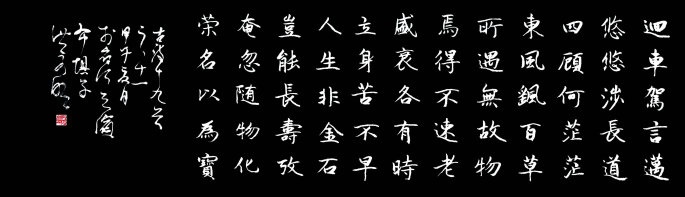 迴車駕言邁
悠悠涉長道
四顧何茫茫
東風飄百草
所遇無故物
焉得不速老
盛衰各有時
立身苦不早
人生非金石
豈能長壽攷
奄忽随物化
榮名以為寶
古詩十九首
之十一
甲午五月